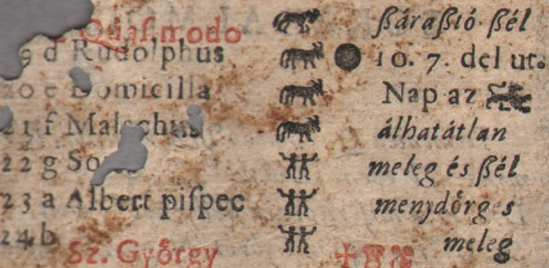 Quasimodo ßáraßtó ßél
d Rudolphus 10. 7. del ut.
20 e Domicilla Nap az
21 f Malachus álhatátlan
22 g meleg és ßél
23 a Albert piſpec menydőrges
24 b
Sz. Győrgy meleg